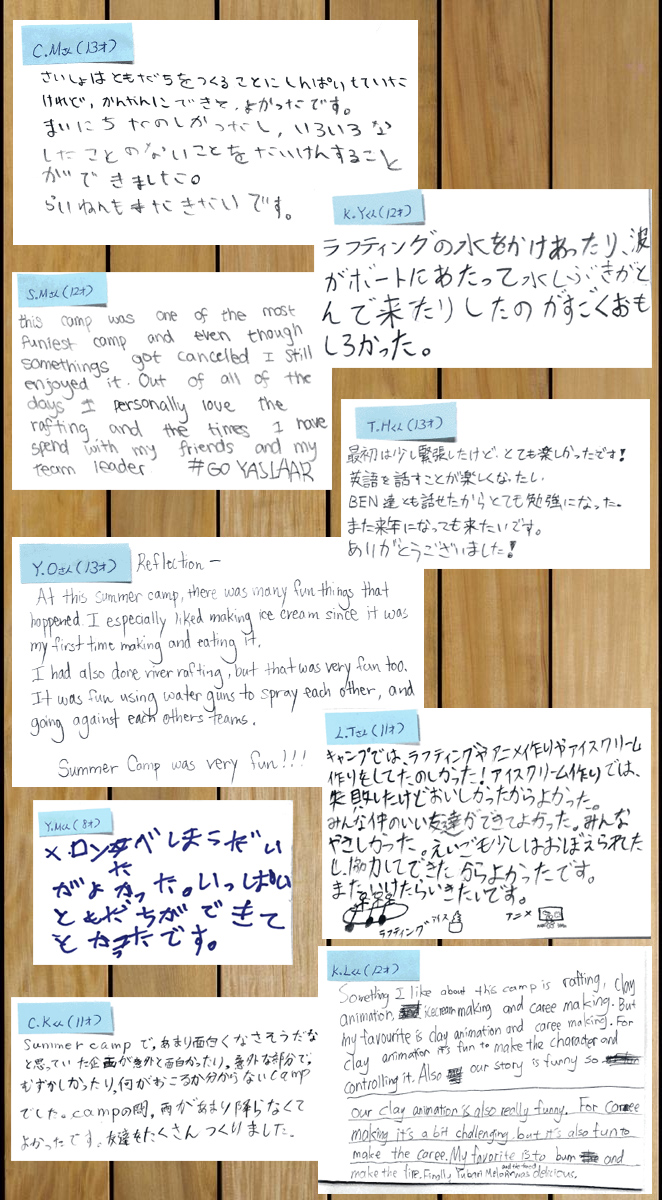 C.Mさん(13才)
さいしょはともだちをつくることにしんぱいしていた
けれど、かんたんにできて、よかったです。
まいにちたのしかったし、いろいろな
したことのないことをたいけんすること
ができました。
らいねんもまたきたいです。
K.Yくん(12才)
ラフティングの水をかけあったり、波
がボートにあたって水しぶきがと
んで来たりしたのがすごくおも
しろかった。
S.Mさん(12才)
this camp was one of the most
funiest camp and even though
somethings got canceled I still
enjoyed it. Out of all of the
days I personally love the
rafting and the times I have
spend with my friends and my
team leader #GO YASLAAR
T.Hくん(13才)
最初は少し緊張したけど、とても楽しかったです!
英語を話すことが楽しくなったし
BEN達とも話せたからとても勉強になった。
また来年になっても来たいです。
ありがとうございました!
Y.Oさん(13才)
Reflection -
At this summer camp, there was many fun things that
happened. I especially liked making ice cream since it was
my first time making and eating it.
I had also done river rafting, but that was very fun too.
It was fun using water guns to spray each other, and
going against each others teams.
Summer Camp was very fun!!!
L.Tさん(11才)
キャンプでは、ラフティングやアニメ作りやアイスクリーム
作りをしてたのしかった!アイスクリーム作りでは、
失敗したけどおいしかったからよかった。
みんな仲のいい友達ができてよかった。みんな
やさしかった。えいごも少しはおぼえられた
し、協力してできたからよかったです。
またいけたらいきたいです。
ラフティング
アイス
アニメ
Y.Mくん(8才)
メロンタベしまうだい
がよかった。いっぱい
ともだちができて
よかったです。
C.Kくん(11才)
Summer campで、あまり面白くなさそうだな
と思っていた企画が意外と面白かったり、意外な部分で、
むずかしかったり、何がおこるか分からないcamp
でした。campの間、雨があまり降らなくて
よかったです。友達をたくさんつくりました。
K.Lくん(12才)
Something I like about this camp is rafting, clay
animation, icecream making and caree making. But
my favourite is clay animation and caree making. For
clay animation it's fun to make the character and
controlling it. Also our story is funny so
our clay animation is also really funny. For Carree
making it's a bit challenging, but it's also fun to
make the caree. My favorite is to burn and
make the fire. Finally Yubari Melon was delicious.